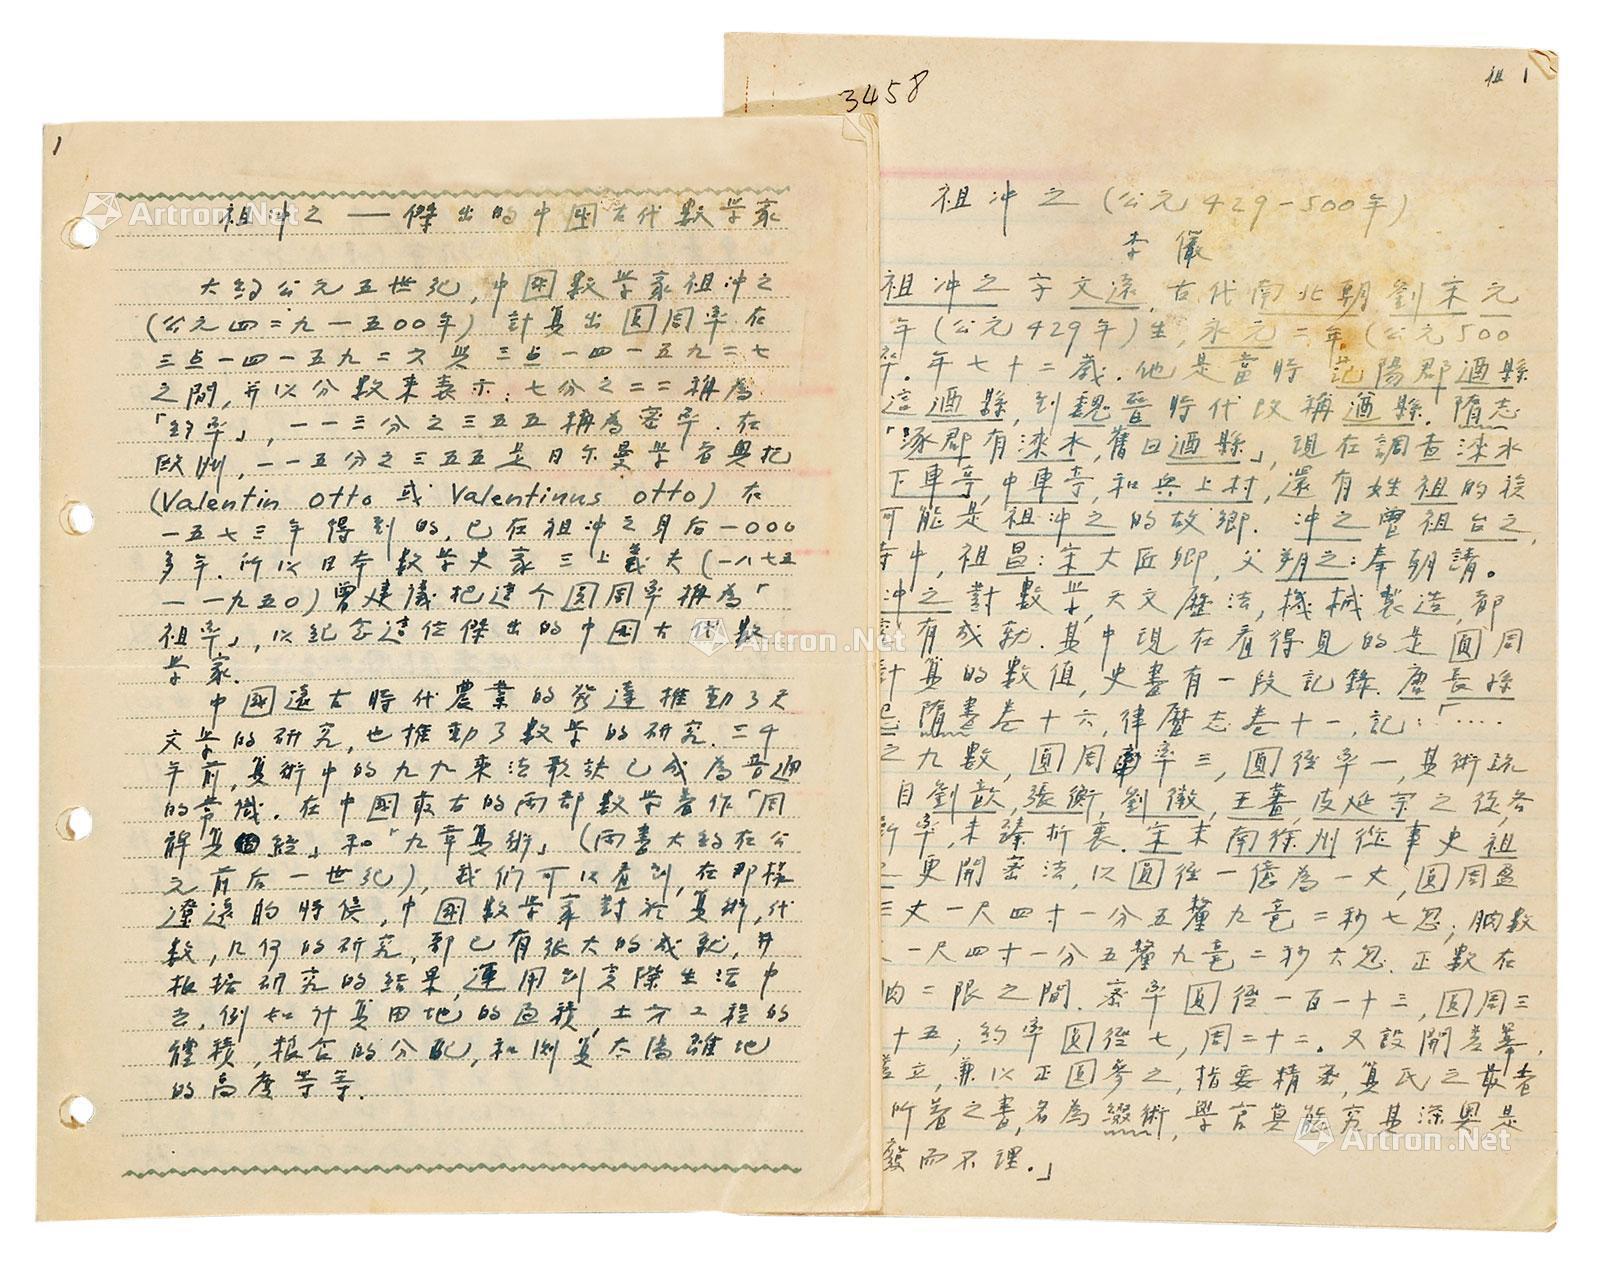 1
祖冲之 — 傑出的中國古代數学家
大約公元五世紀,中國數学家祖冲之
(公元四二九—五00年) 計算出圓周率在
三点一四一五九二六與三点一四一五九二七
之間,并以分數来表示:七分之二二稱為
「約率」,一一三分之三五五稱為密率.在
欧州,一一五分之三五五是日尔曼学者奥托
(Valentin Otto 或 Valentinus Otto) 在
一五七三年得到的,已在祖冲之身后一000
多年.所以日本數学史家三上義夫(一八七五
—一九五0)曾建議把這个圓周率稱為「
祖率」,以紀念這位傑出的中國古代數
学家.
中國遠古時代農業的發達推動了天
文学的研究,也推動了數学的研究.二千
年前,算術中的九九乘法歌訣已成為普通
的常識.在中國最古的兩部數学著作「周
髀算經」和「九章算術」(兩書大約在公
元前后一世紀),我們可以看到,在那樣
遼遠的時候,中國數学家對於算術,代
數,几何的研究,都已有很大的成就,并
根据研究的結果,運用到实際生活中
去,例如计算田地的面積,土方工程的
體積,粮食的分配,和測算太陽離地
的高度等等.
3458
祖 1
祖冲之 (公元429-500年)
李儼
祖冲之字文遠,古代南北朝劉宋元
年(公元429年)生,永元二年(公元500
卒.年七十二歲.他是當時范陽郡遒縣
這遒縣,到魏晉時代改稱遒縣.隋志
「涿郡有淶水,舊曰遒縣」,現在調查淶水
下車亭,中車亭,和兵上村,還有姓祖的後
可能是祖冲之的故鄉.冲之曾祖台之,
侍中,祖昌:宋大匠卿,父朔之:奉朝請。
冲之對數学,天文歷法,機械製造,都
有成就.其中現在看得見的是圓周
計算的數值,史書有一段記錄.唐長孫
隋書卷十六,律歷志卷十一,記:「····
之九數,圓周率三,圓徑率一,其術疏
自劉歆,張衡,劉徽,王蕃,皮延宗之徒,各
新率,未臻折衷.宋末南徐州從事史祖
更開密法,以圓徑一億為一丈,圓周盈
三丈一尺四寸一分五釐九毫二秒七忽;朒数
一尺四寸一分五釐九毫二秒六忽.正數在
朒二限之間.密率圓徑一百一十三,圓周三
十五;約率圓徑七,周二十二。又設開差冪,
差立,兼以正圓參之,指要精密,算氏之最者
所著之書,名為綴術,學官莫能究其深奥是
廢而不理。」